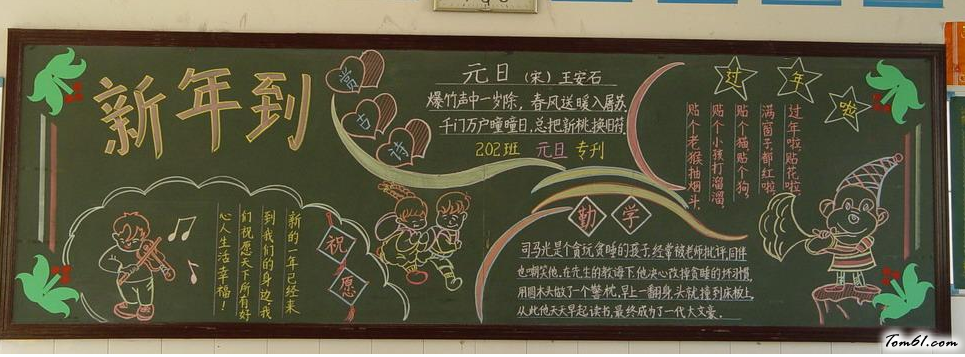 新年到
赏
古
诗
元日（宋）王安石
爆竹声中一岁除，春风送暖入屠苏
千门万户曈曈日，总把新桃换旧符
202班 元旦 专刊
过年啦
过年啦，贴花啦，
满窗子，都红啦，
贴个猫，贴个狗，
贴个小孩打溜溜，
贴个老猴抽烟斗。
祝愿
新的一年已经来
到我们的身边，我
们祝愿天下所有好
心人生活幸福！
勤学
司马光是个贪玩贪睡的孩子，经常被老师批评，同伴
也嘲笑他，在先生的教诲下，他决心改掉贪睡的坏习惯，
用圆木头做了一个警枕，早上一翻身，头就撞到床板上，
从此他天天早起读书，最终成为了一代大文豪。
Tom61.com